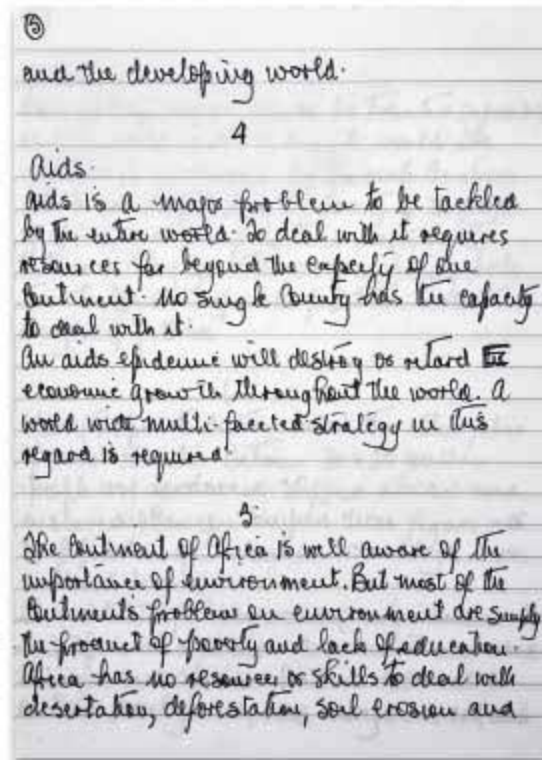 5
and the developing world.
4
Aids.
Aids is a major problem to be tackled
by the entire world. To deal with it requires
resources far beyond the capacity of one
continent. No single country has the capacity
to deal with it.
An aids epidemic will destroy or retard
economic growth throughout the world. A
world wide multi-faceted strategy in this
regard is required.
5
The continent of Africa is well aware of the
importance of environment. But most of the
continent's problems on environment are simply
the product of poverty and lack of education.
Africa has no resources or skills to deal with
desertation, deforestation, soil erosion and